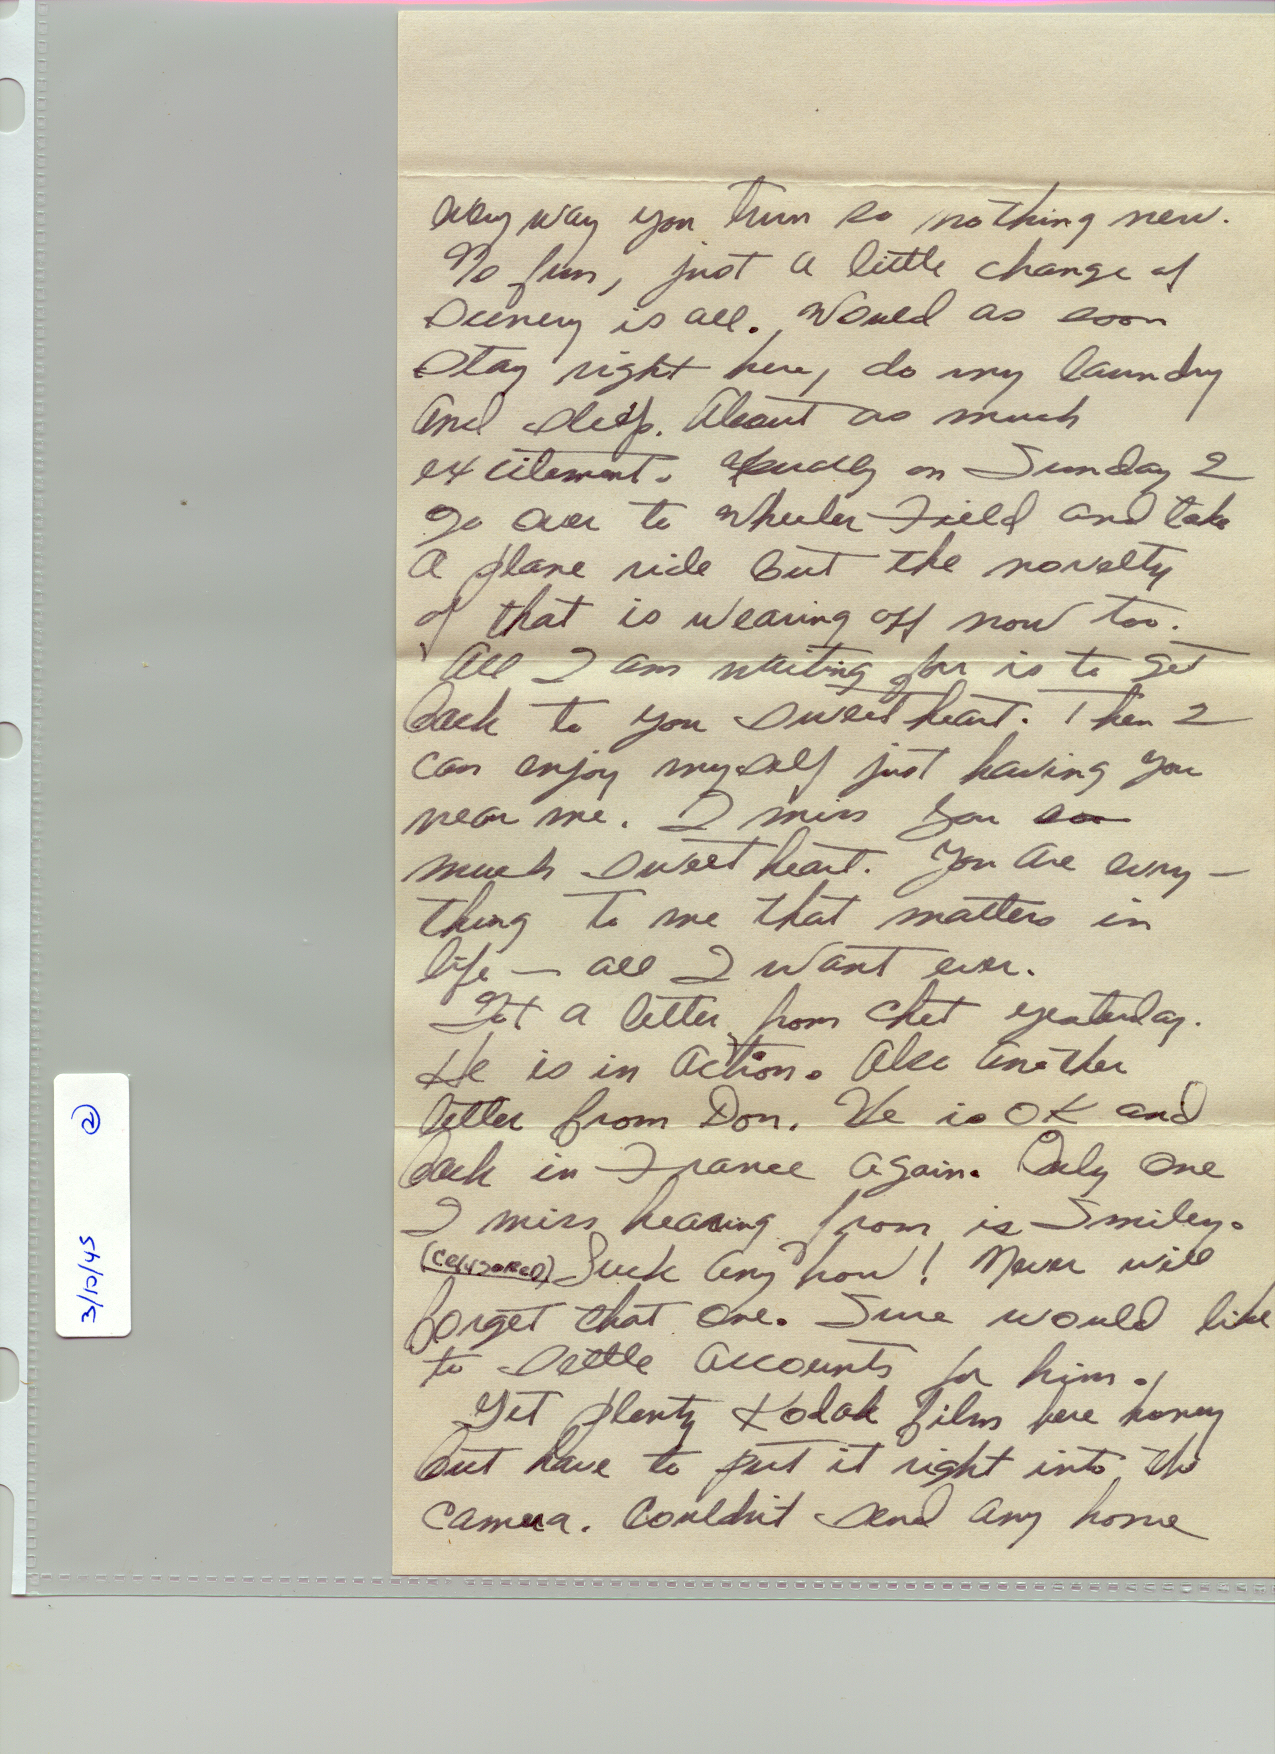 every way you turn so nothing new.
No fun, just a little change of
scenery is all. Would as soon
stay right here, do my laundry
and sleep. About as much
excitement. Usually on Sunday I
go over to Wheeler Field and take
a plane ride but the novelty
of that is wearing off now too.
All I am waiting for is to get
back to you sweetheart. Then I
can enjoy myself just having you
near me. I miss you so
much sweetheart. You are every-
thing to me that matters in
life — all I want ever.
Got a letter from Chet yesterday.
He is in action. Also another
letter from Don. He is OK and
back in France again. Only one
I miss hearing from is Smiley.
(CENSORED) Luck any how! Never will
forget that one. Sure would like
to settle accounts for him.
Get plenty Kodak films here honey
but have to put it right into the
camera. Couldn't send any home
3/10/45 2